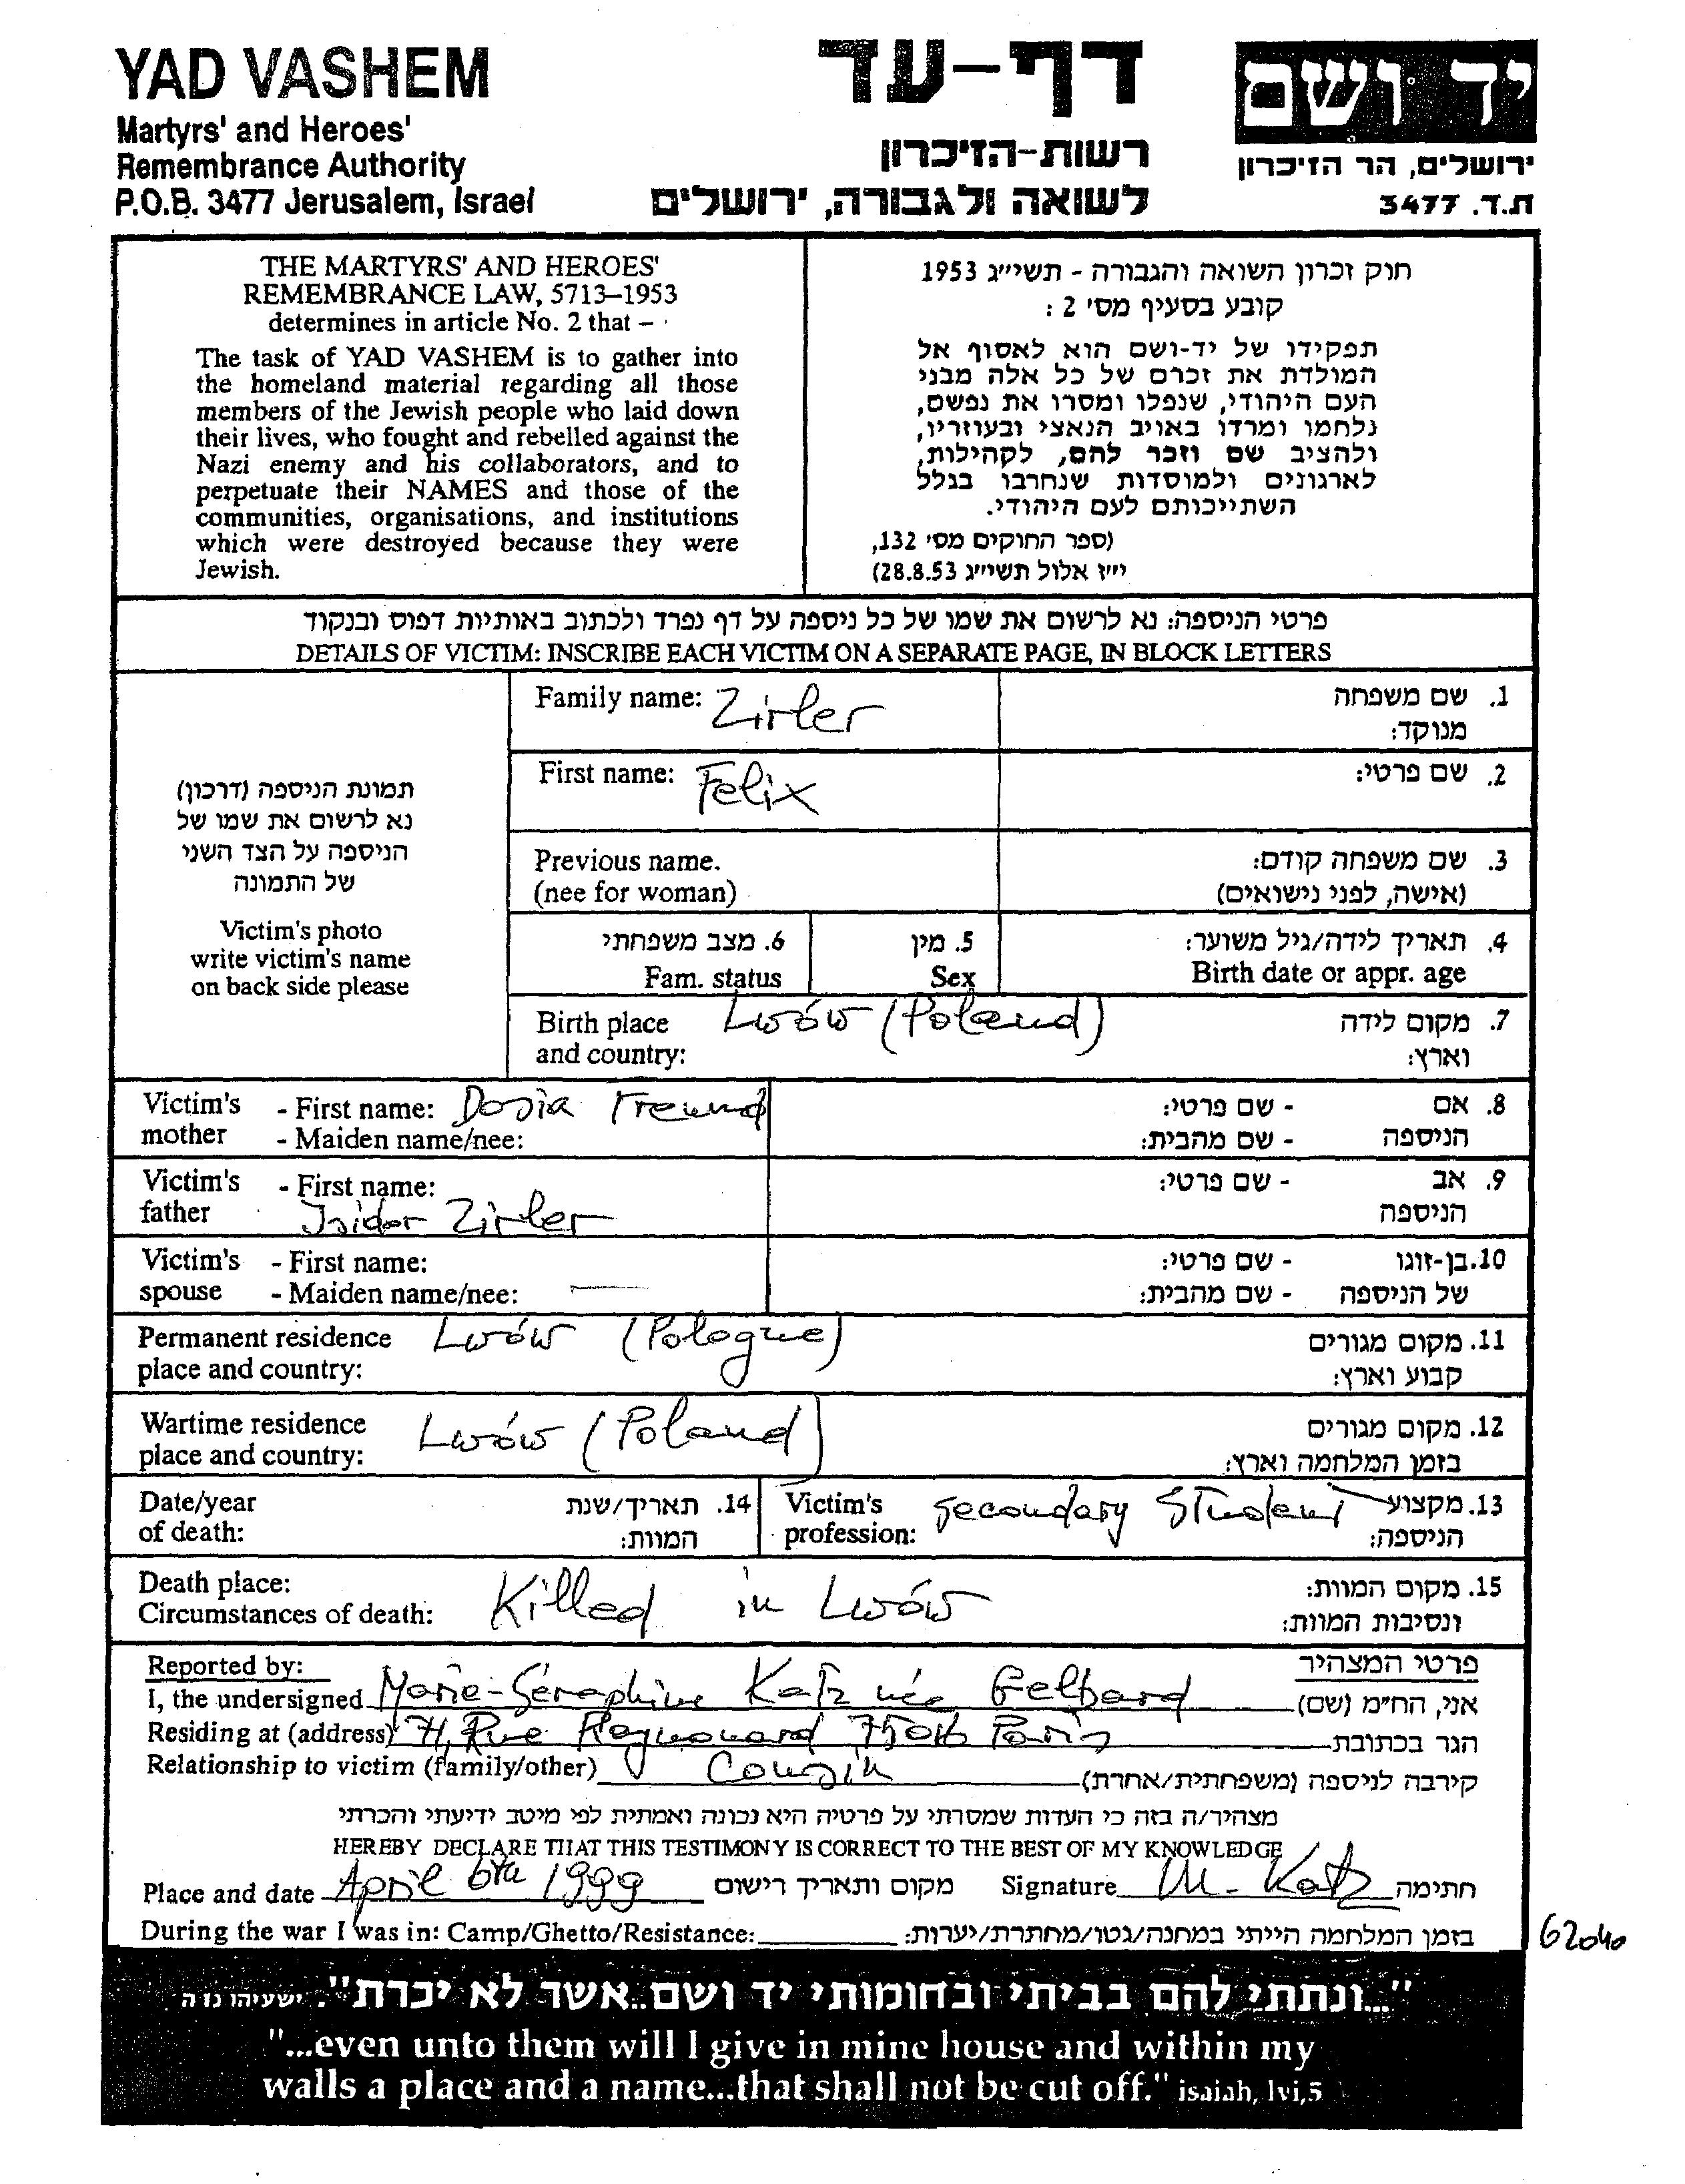 YAD VASHEM
Martyrs' and Heroes'
Remembrance Authority
P.O.B. 3477 Jerusalem, Israel
דף-עד
רשות-הזיכרון
לשואה ולגבורה, ירושלים
יד ושם
ירושלים, הר הזיכרון
ת.ד. 3477
THE MARTYRS' AND HEROES'
REMEMBRANCE LAW, 5713–1953
determines in article No. 2 that –
The task of YAD VASHEM is to gather into
the homeland material regarding all those
members of the Jewish people who laid down
their lives, who fought and rebelled against the
Nazi enemy and his collaborators, and to
perpetuate their NAMES and those of the
communities, organisations, and institutions
which were destroyed because they were
Jewish.
חוק זכרון השואה והגבורה - תשי״ג 1953
קובע בסעיף מס׳ 2 :
תפקידו של יד-ושם הוא לאסוף אל
המולדת את זכרם של כל אלה מבני
העם היהודי, שנפלו ומסרו את נפשם,
נלחמו ומרדו באויב הנאצי ובעוזריו,
ולהציב שם וזכר להם, לקהילות,
לארגונים ולמוסדות שנחרבו בגלל
השתייכותם לעם היהודי.
(ספר החוקים מס׳ 132,
י״ז אלול תשי״ג 28.8.53)
פרטי הניספה: נא לרשום את שמו של כל ניספה על דף נפרד ולכתוב באותיות דפוס ובנקוד
DETAILS OF VICTIM: INSCRIBE EACH VICTIM ON A SEPARATE PAGE, IN BLOCK LETTERS
תמונת הניספה (דרכון)
נא לרשום את שמו של
הניספה על הצד השני
של התמונה
Victim's photo
write victim's name
on back side please
Family name: Zirler
1. שם משפחה
מנוקד:
First name: Felix
2. שם פרטי:
Previous name.
(nee for woman)
3. שם משפחה קודם:
(אישה, לפני נישואים)
6. מצב משפחתי
Fam. status
5. מין
Sex
4. תאריך לידה/גיל משוער:
Birth date or appr. age
Birth place Lwów (Poland)
and country:
7. מקום לידה
וארץ:
Victim's - First name: Dosia Freund
mother - Maiden name/nee:
8. אם - שם פרטי:
הניספה - שם מהבית:
Victim's - First name:
father Isidor Zirler
9. אב - שם פרטי:
הניספה
Victim's - First name:
spouse - Maiden name/nee:
10. בן-זוגו - שם פרטי:
של הניספה - שם מהבית:
Permanent residence Lwów (Pologne)
place and country:
11. מקום מגורים
קבוע וארץ:
Wartime residence Lwów (Poland)
place and country:
12. מקום מגורים
בזמן המלחמה וארץ:
Date/year
of death:
14. תאריך/שנת
המוות:
Victim's secondary Student
profession:
13. מקצוע
הניספה:
Death place:
Circumstances of death: Killed in Lwów
15. מקום המוות:
ונסיבות המוות:
Reported by:
פרטי המצהיר
I, the undersigned Marie-Séraphine Katz née Gelbard אני, הח״מ (שם)
Residing at (address) 71, Rue Raynouard 75016 Paris הגר בכתובת
Relationship to victim (family/other) Cousin קירבה לניספה (משפחתית/אחרת)
מצהיר/ה בזה כי העדות שמסרתי על פרטיה היא נכונה ואמתית לפי מיטב ידיעתי והכרתי
HEREBY DECLARE THAT THIS TESTIMONY IS CORRECT TO THE BEST OF MY KNOWLEDGE
Place and date April 6th 1999 מקום ותאריך רישום Signature M. Katz חתימה
During the war I was in: Camp/Ghetto/Resistance: בזמן המלחמה הייתי במחנה/גטו/מחתרת/יערות:
62040
"...ונתתי להם בביתי ובחומותי יד ושם..אשר לא יכרת". ישעיהו נו ה
"...even unto them will I give in mine house and within my
walls a place and a name...that shall not be cut off." isaiah, lvi,5